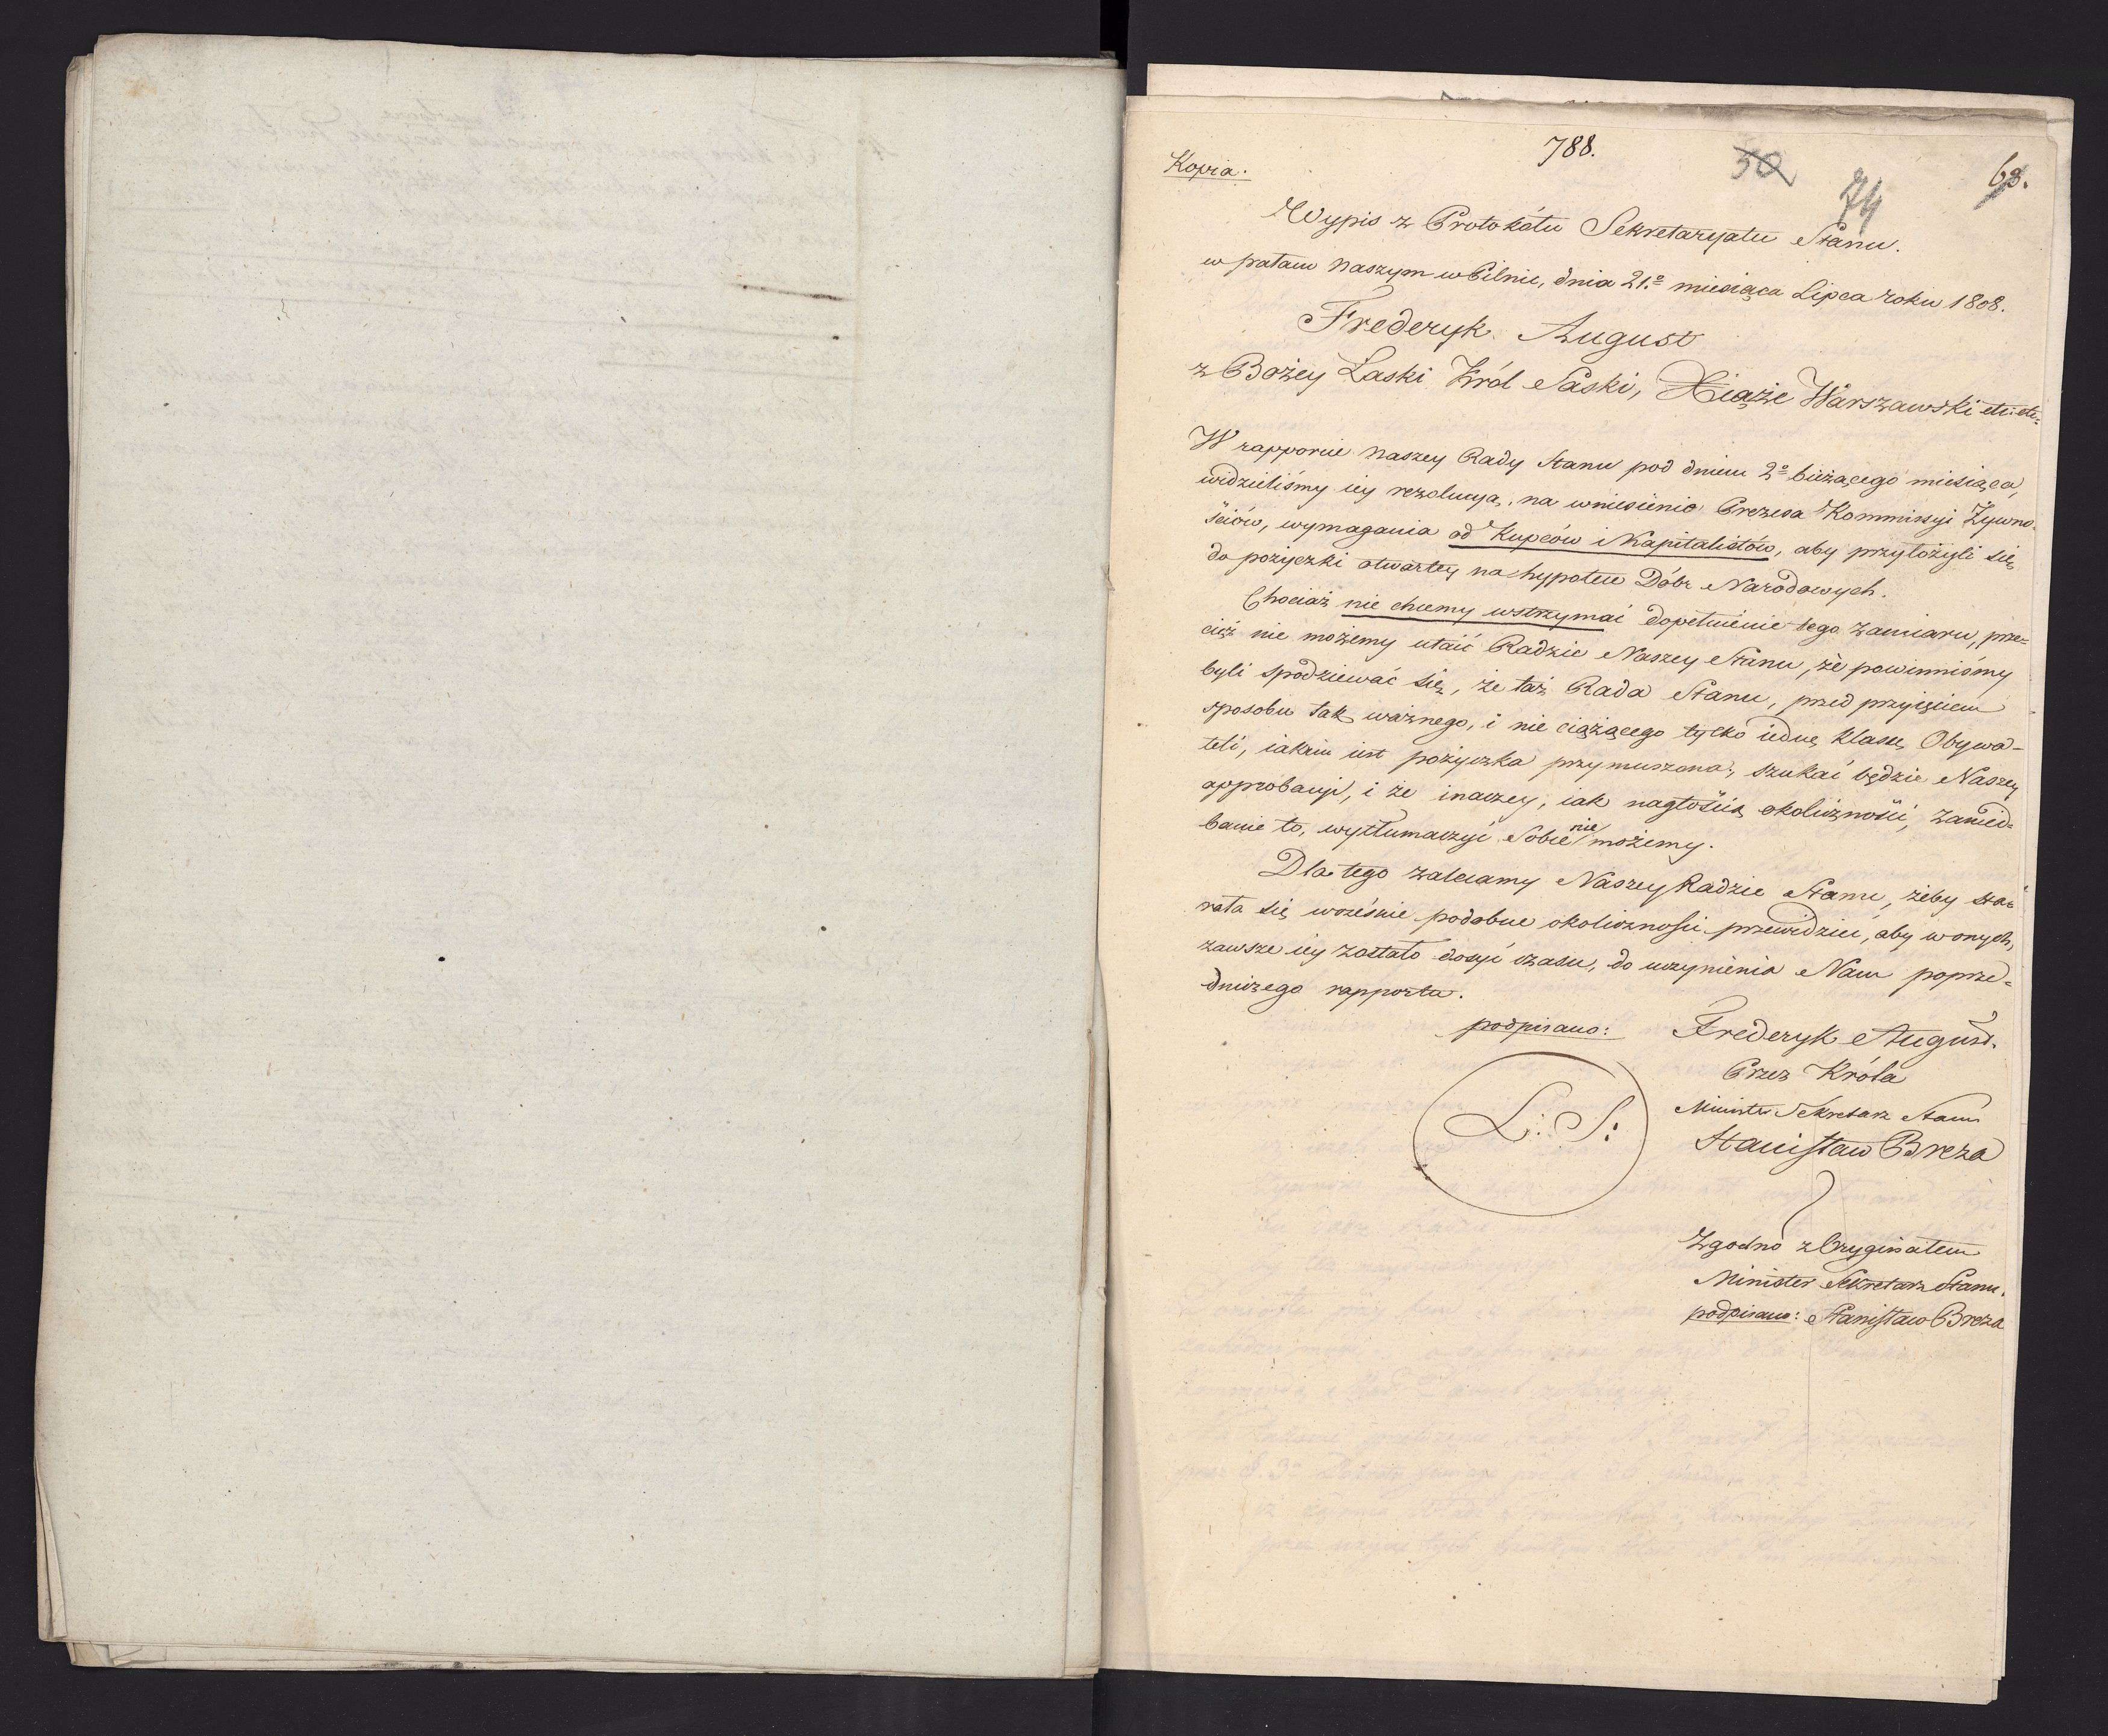 788.
Kopia.
30
74
63.
Wypis z Protokółu Sekretaryatu Stanu.
w pałacu naszym w Pilnic, dnia 21.º miesiąca Lipca roku 1808.
Frederyk August
z Bożey Łaski Król Saski, Xiąże Warszawski etc: etc:
W rapporcie naszey Rady Stanu pod dniem 2º bieżącego miesiąca,
widzieliśmy iey rezolucyą, na wniesienie Prezesa Kommissyi Żywno-
ściów, wymagania od Kupców i Kapitalistów, aby przyłożyli się
do pożyczki otwartey na hypotece Dóbr Narodowych.
Chociaż nie chcemy wstrzymać dopełnienie tego zamiaru, prze-
cięż nie możemy utaić Radzie Naszey Stanu, że powinniśmy
byli spodziewać się, że taż Rada Stanu, przed przyięciem
sposobu tak ważnego, i nie ciążącego tylko iedną klassę Obywa-
teli, iakim iest pożyczka przymuszona, szukać będzie Naszey
approbacyi, i że inaczey, iak nagłością okoliczności, zanied-
banie to, wytłumaczyć Sobie nie możemy.
Dla tego zalecamy Naszey Radzie Stanu, żeby sta-
rała się wcześnie podobne okoliczności przewidzieć, aby w onych,
zawsze iey zostało dosyć czasu, do uczynienia Nam poprze-
dniczego rapportu.
podpisano: Frederyk August.
Przez Króla
Minister Sekretarz Stanu
Stanisław Breza
L: S:
Zgodno z Oryginałem
Minister Sekretarz Stanu.
podpisano: Stanisław Breza